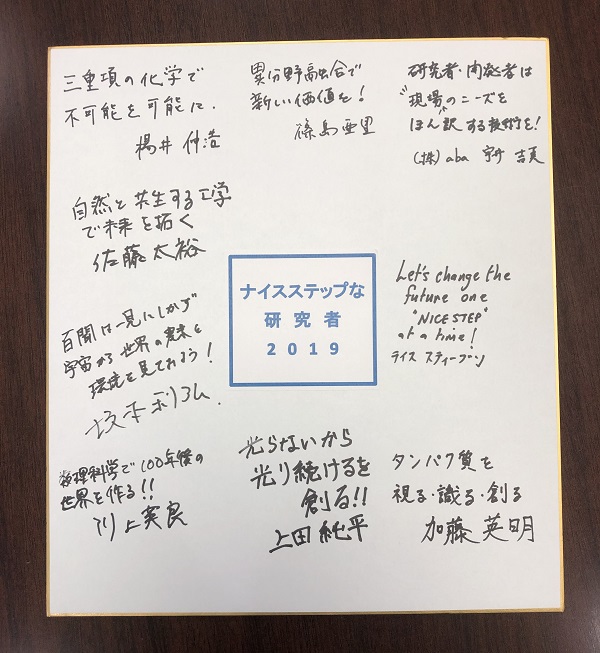 三重項の化学で
不可能を可能に.
楊井 伸浩
異分野融合で
新しい価値を！
篠島 亜里
研究者・開発者は
"現場"のニーズを
ほん訳する技術を!
(株)aba 宇井 吉美
自然と共生する工学
で未来を拓く
佐藤 太裕
ナイスステップな
研究者
2019
Let's change the
future one
"NICE STEP"
at a time!
ライス スティーブン
百聞は一見にしかず
宇宙から世界の農業と
環境を見ておろう!
坂本 利弘
数理科学で100年後の
世界を作る!!
川上 実良
光らないから
光り続けるを
創る!!
上田 純平
タンパク質を
視る・識る・創る
加藤 英明